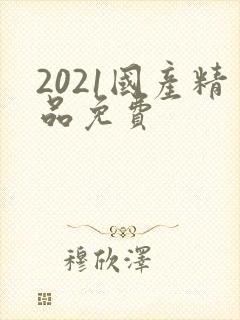 2021國產精
品免費
穆欣澤